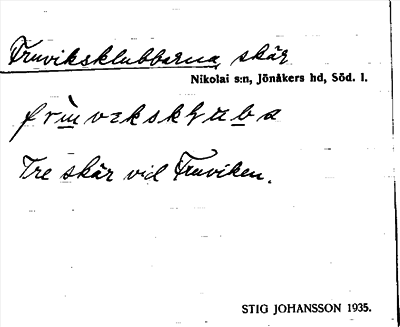 Fruviksklubbarna, skär
Nikolai s:n, Jönåkers hd, Söd. l.
Tre skär vid Fruviken.
STIG JOHANSSON 1935.